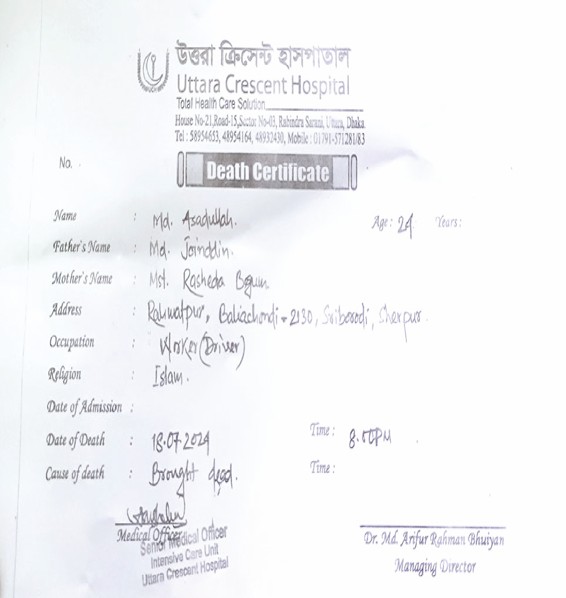 উত্তরা ক্রিসেন্ট হাসপাতাল
Uttara Crescent Hospital
Total Health Care Solution
House No-21,Road-15,Sector No-03, Rabindra Sarani, Uttara, Dhaka
Tel : 58954653, 48954164, 48932430, Mobile : 01791-571281/83
No.
Death Certificate
Name : Md. Asadullah. Age : 24 Years:
Father's Name : Md. Joinddin.
Mother's Name : Mst. Rasheda Begum
Address : Rahmatpur, Baliachondi - 2130, Sribordi, Sherpur.
Occupation : Worker (Driver)
Religion : Islam.
Date of Admission :
Date of Death : 18.07.2024 Time : 8.00PM
Cause of death : Brought dead. Time :
Medical Officer
Senior Medical Officer
Intensive Care Unit
Uttara Crescent Hospital
Dr. Md. Arifur Rahman Bhuiyan
Managing Director